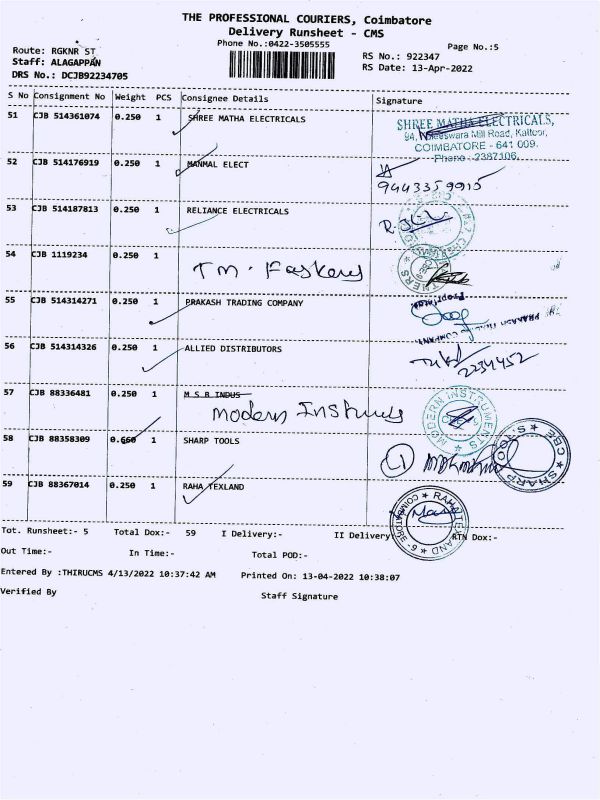 THE PROFESSIONAL COURIERS, Coimbatore
Delivery Runsheet - CMS
Phone No.:0422-3505555
Page No.:5
Route: RGKNR ST
Staff: ALAGAPPAN
DRS No.: DCJB92234705
RS No.: 922347
RS Date: 13-Apr-2022
S No Consignment No Weight PCS Consignee Details Signature
51 CJB 514361074 0.250 1 SHREE MATHA ELECTRICALS
SHREE MATHA ELECTRICALS,
COIMBATORE - 641 009.
Phone: 2387106,
52 CJB 514176919 0.250 1 MANMAL ELECT
9443359915
53 CJB 514187813 0.250 1 RELIANCE ELECTRICALS
54 CJB 1119234 0.250 1
55 CJB 514314271 0.250 1 PRAKASH TRADING COMPANY
56 CJB 514314326 0.250 1 ALLIED DISTRIBUTORS
2234452
57 CJB 88336481 0.250 1 M S B INDUS
Modern
MODERN INSTRUMENTS
58 CJB 88358309 0.660 1 SHARP TOOLS
SHARP TOOLS CBE
59 CJB 88367014 0.250 1 RAHA TEXLAND
RAHA TEXLAND COIMBATORE-6
Tot. Runsheet:- 5 Total Dox:- 59 I Delivery:- II Delivery RTN Dox:-
Out Time:- In Time:- Total POD:-
Entered By :THIRUCMS 4/13/2022 10:37:42 AM Printed On: 13-04-2022 10:38:07
Verified By Staff Signature